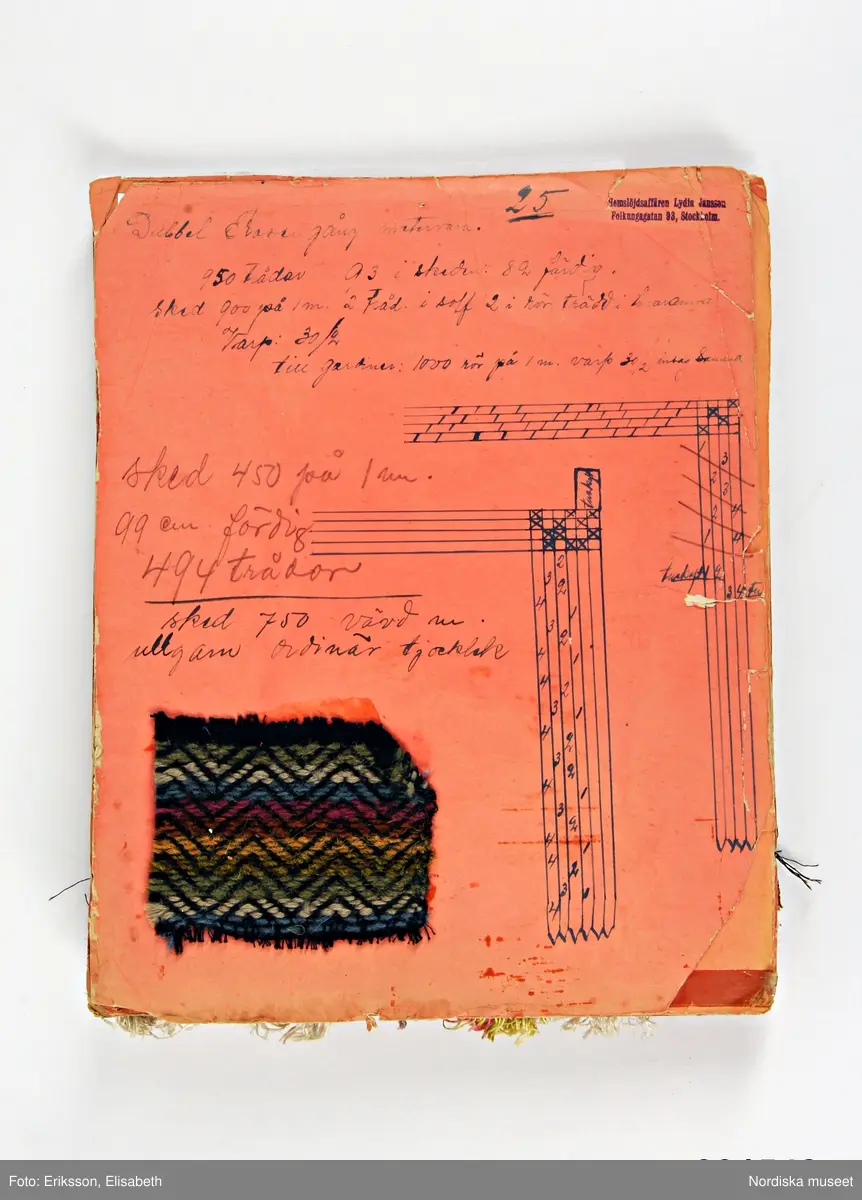 25
Hemslöjdsaffären Lydia Jansson
Folkungagatan 93, Stockholm.
Dubbel Rosengång metervara.
950 trådar 93 i skeden: 82 färdig.
sked 900 på 1 m. 2 tråd. i solf 2 i rör trädd i
Varp: 30/2
till gardiner: 1000 rör på 1 m. varp 30/2
sked 450 på 1 m.
99 cm färdig
494 trådar
sked 750 vävd m.
ullgarn ordinär tjocklek
tuskaft
Foto: Eriksson, Elisabeth
Nordiska museet